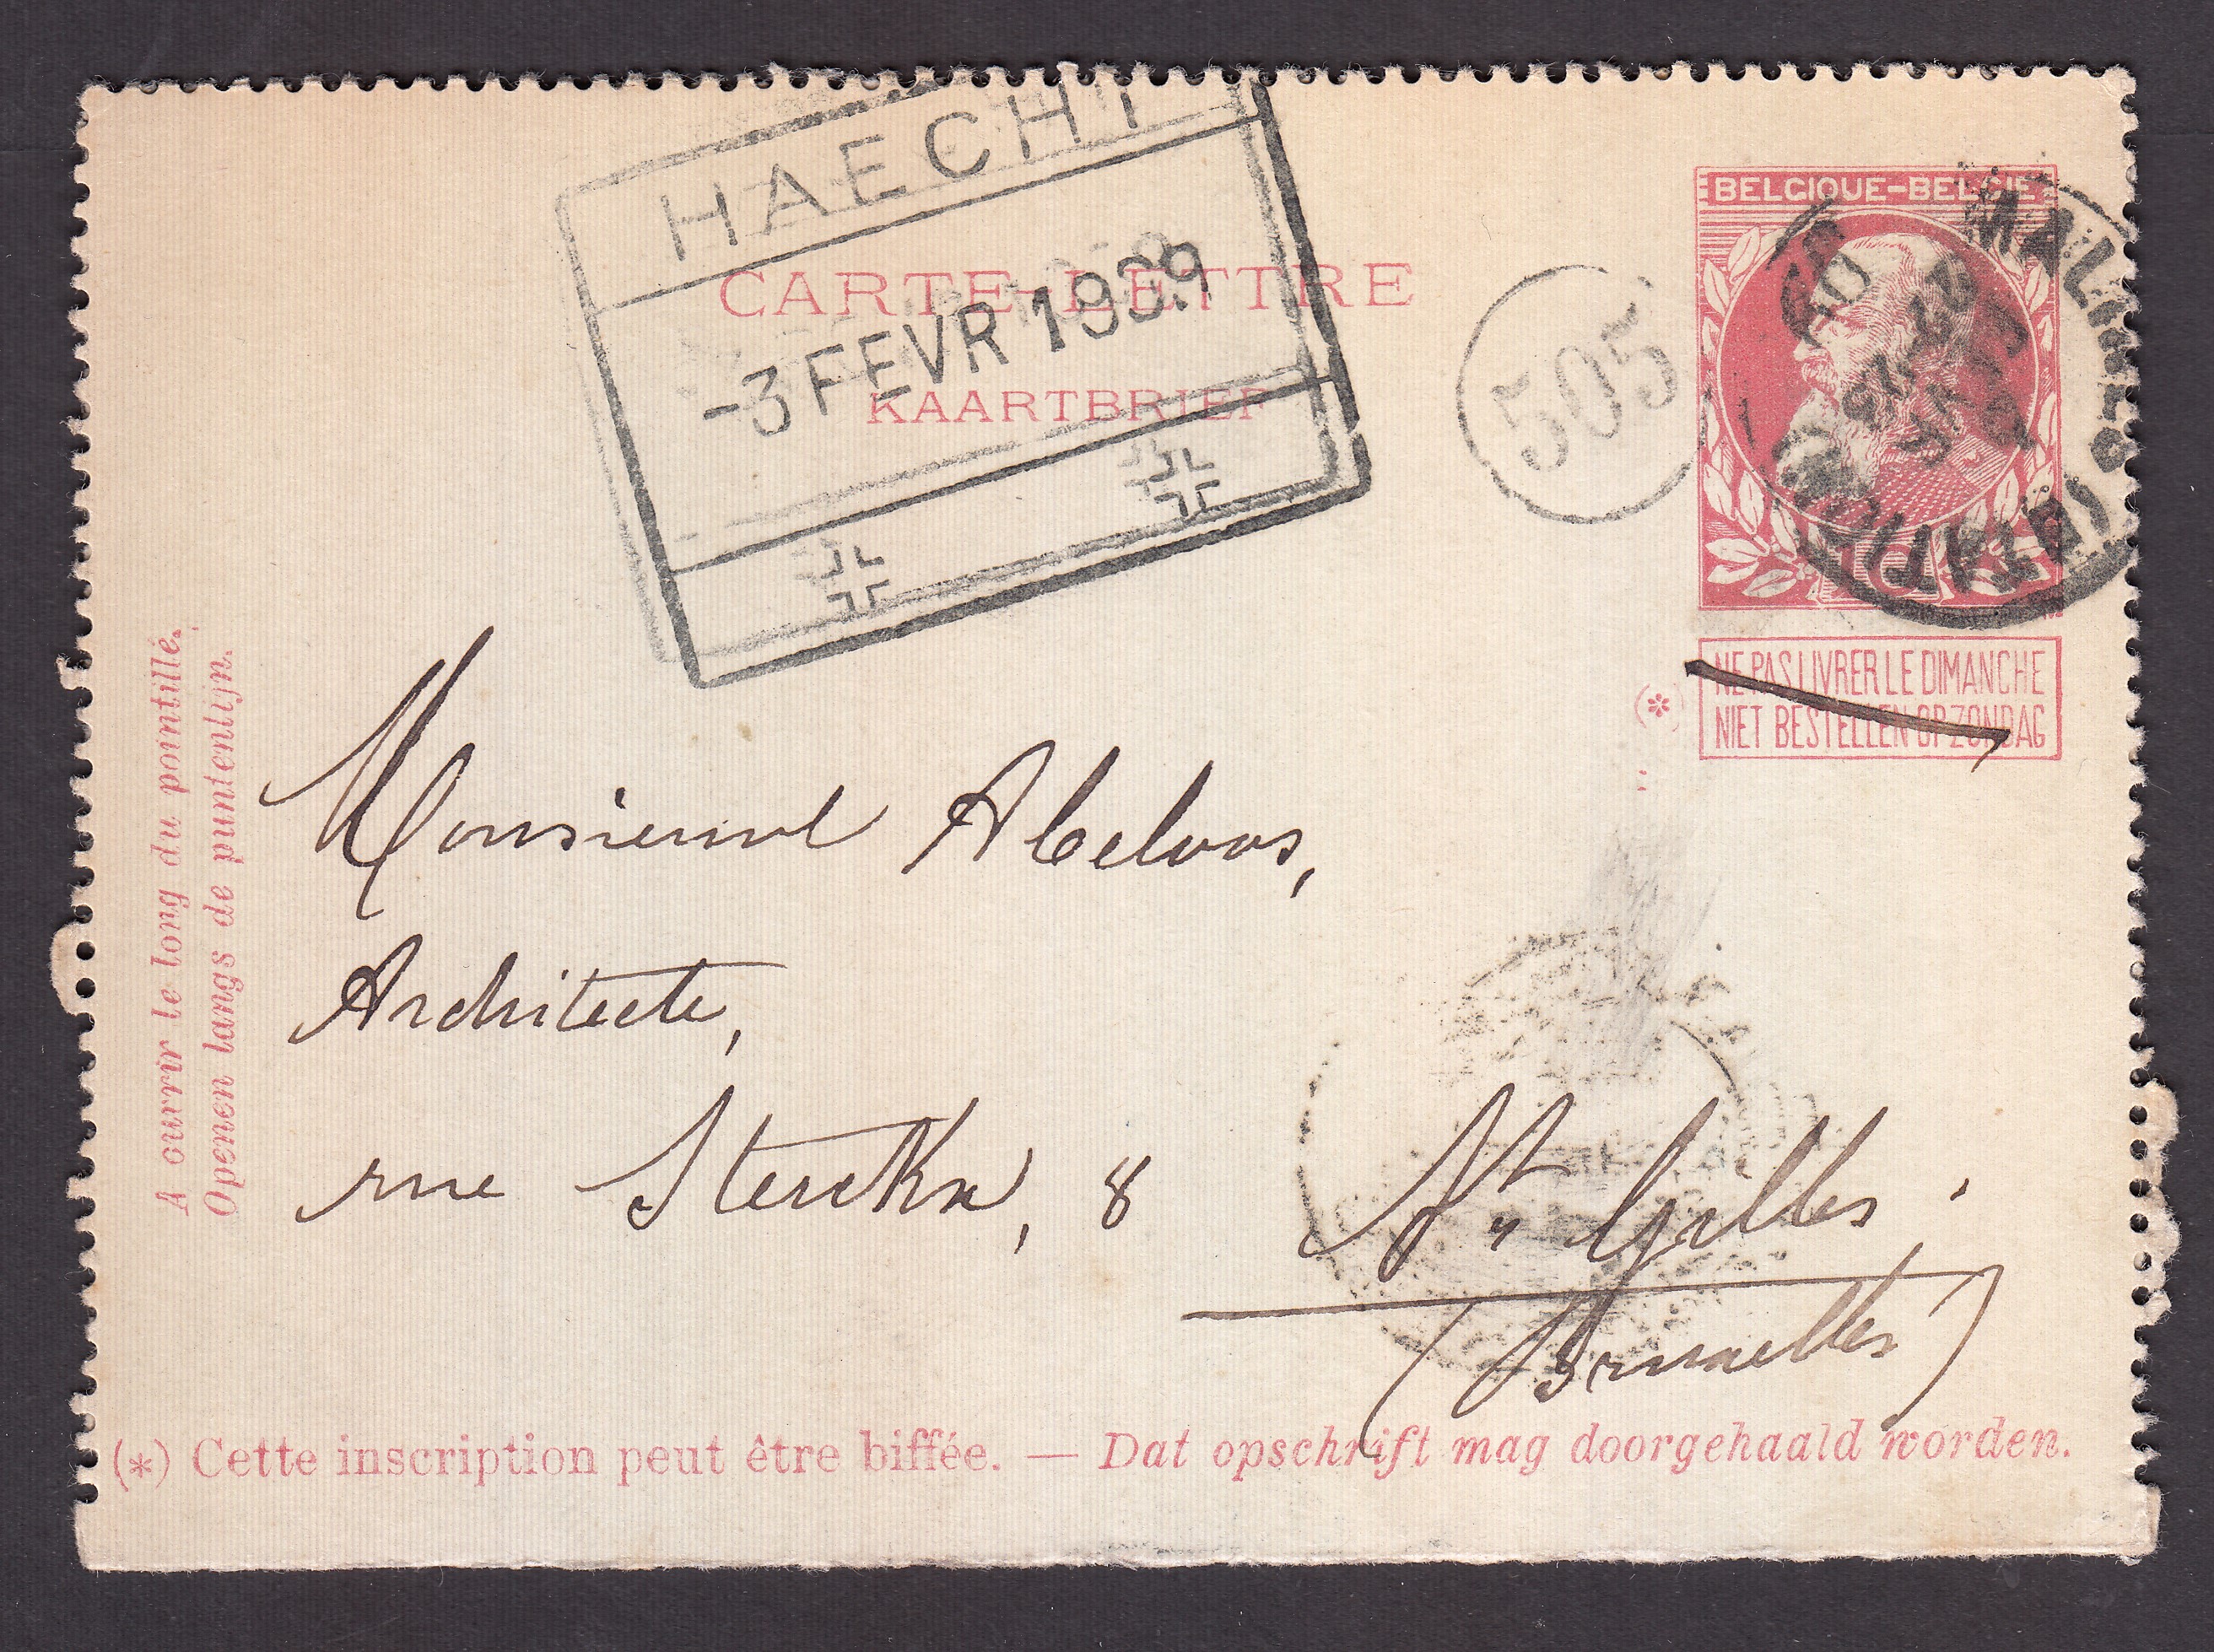 HAECHT
BELGIQUE-BELGIE
CARTE-LETTRE
-3 FEVR 1909
KAARTBRIEF
505
MALINES
(STATION)
3
FEVR
09
10
NE PAS LIVRER LE DIMANCHE
NIET BESTELLEN OP ZONDAG
(*)
A ouvrir le long du pointillé.
Openen langs de puntenlijn.
Monsieur Abeloos,
Architecte,
rue Sterckx, 8
St Gilles.
(Bruxelles)
(*) Cette inscription peut être biffée. — Dat opschrift mag doorgehaald worden.